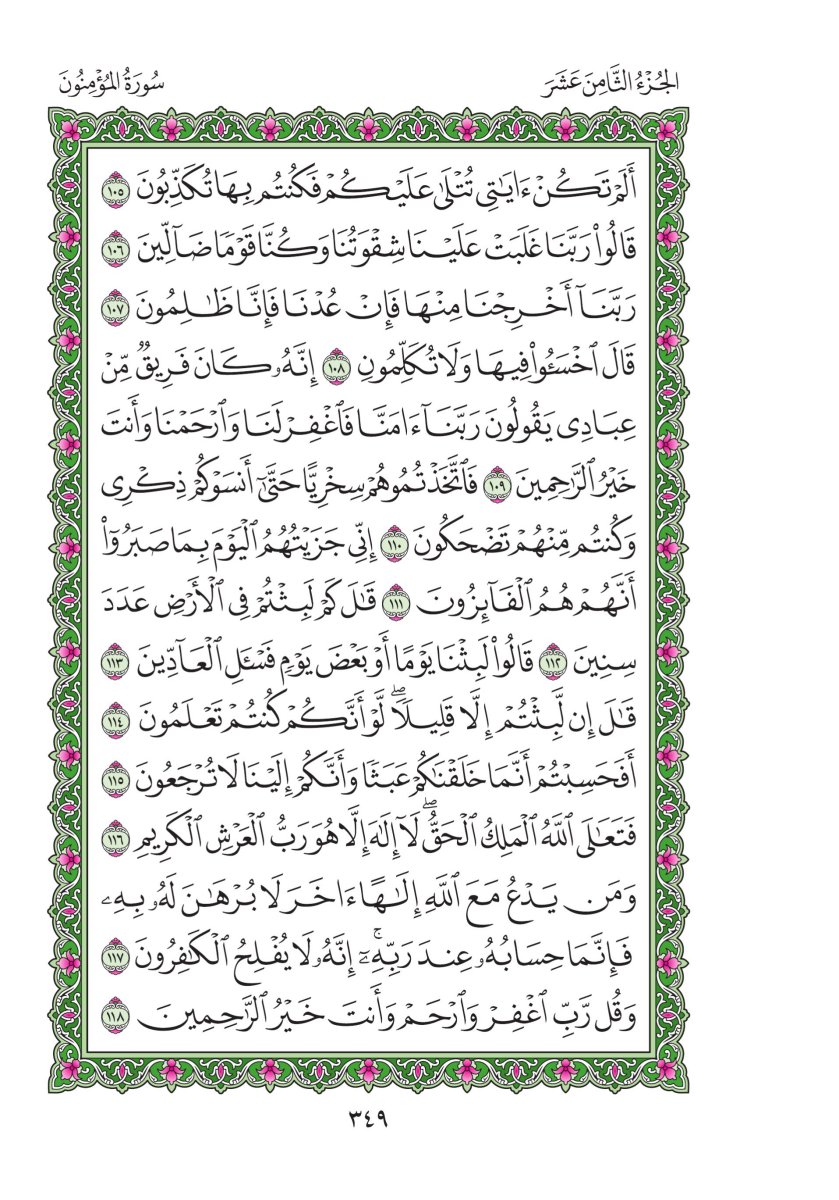 الجُزْءُ الثَّامِنَ عَشَرَ
سُورَةُ المُؤْمِنُونَ
أَلَمْ تَكُنْ ءَايَٰتِى تُتْلَىٰ عَلَيْكُمْ فَكُنتُم بِهَا تُكَذِّبُونَ ١٠٥
قَالُوا۟ رَبَّنَا غَلَبَتْ عَلَيْنَا شِقْوَتُنَا وَكُنَّا قَوْمًا ضَآلِّينَ ١٠٦
رَبَّنَآ أَخْرِجْنَا مِنْهَا فَإِنْ عُدْنَا فَإِنَّا ظَٰلِمُونَ ١٠٧
قَالَ ٱخْسَـُٔوا۟ فِيهَا وَلَا تُكَلِّمُونِ ١٠٨ إِنَّهُۥ كَانَ فَرِيقٌ مِّنْ
عِبَادِى يَقُولُونَ رَبَّنَآ ءَامَنَّا فَٱغْفِرْ لَنَا وَٱرْحَمْنَا وَأَنتَ
خَيْرُ ٱلرَّٰحِمِينَ ١٠٩ فَٱتَّخَذْتُمُوهُمْ سِخْرِيًّا حَتَّىٰٓ أَنسَوْكُمْ ذِكْرِى
وَكُنتُم مِّنْهُمْ تَضْحَكُونَ ١١٠ إِنِّى جَزَيْتُهُمُ ٱلْيَوْمَ بِمَا صَبَرُوٓا۟
أَنَّهُمْ هُمُ ٱلْفَآئِزُونَ ١١١ قَٰلَ كَمْ لَبِثْتُمْ فِى ٱلْأَرْضِ عَدَدَ
سِنِينَ ١١٢ قَالُوا۟ لَبِثْنَا يَوْمًا أَوْ بَعْضَ يَوْمٍ فَسْـَٔلِ ٱلْعَآدِّينَ ١١٣
قَٰلَ إِن لَّبِثْتُمْ إِلَّا قَلِيلًا ۖ لَّوْ أَنَّكُمْ كُنتُمْ تَعْلَمُونَ ١١٤
أَفَحَسِبْتُمْ أَنَّمَا خَلَقْنَٰكُمْ عَبَثًا وَأَنَّكُمْ إِلَيْنَا لَا تُرْجَعُونَ ١١٥
فَتَعَٰلَى ٱللَّهُ ٱلْمَلِكُ ٱلْحَقُّ ۖ لَآ إِلَٰهَ إِلَّا هُوَ رَبُّ ٱلْعَرْشِ ٱلْكَرِيمِ ١١٦
وَمَن يَدْعُ مَعَ ٱللَّهِ إِلَٰهًا ءَاخَرَ لَا بُرْهَٰنَ لَهُۥ بِهِۦ
فَإِنَّمَا حِسَابُهُۥ عِندَ رَبِّهِۦٓ ۚ إِنَّهُۥ لَا يُفْلِحُ ٱلْكَٰفِرُونَ ١١٧
وَقُل رَّبِّ ٱغْفِرْ وَٱرْحَمْ وَأَنتَ خَيْرُ ٱلرَّٰحِمِينَ ١١٨
٣٤٩